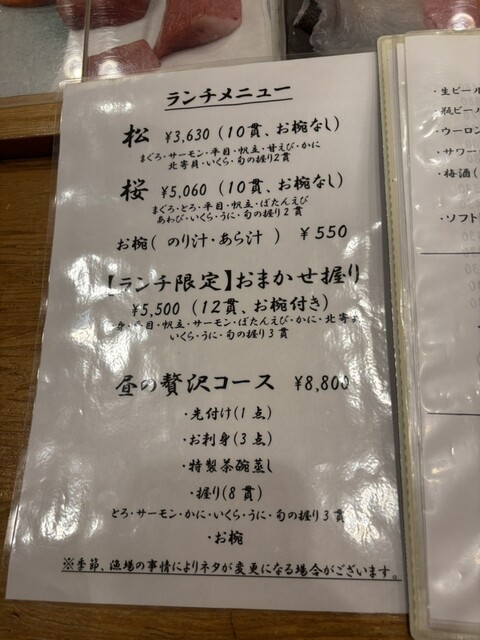 ランチメニュー
松 ¥3,630 (10貫、お椀なし)
まぐろ・サーモン・平目・帆立・甘えび・かに
北寄貝・いくら・旬の握り2貫
桜 ¥5,060 (10貫、お椀なし)
まぐろ・とろ・平目・帆立・ぼたんえび
あわび・いくら・うに・旬の握り2貫
お椀( のり汁・あら汁 ) ¥550
【ランチ限定】おまかせ握り
¥5,500 (12貫、お椀付き)
身・平目・帆立・サーモン・ぼたんえび・かに・北寄
いくら・うに・旬の握り3貫
昼の贅沢コース ¥8,800
・先付け(1点)
・お刺身(3点)
・特製茶碗蒸し
・握り(8貫)
とろ・サーモン・かに・いくら・うに・旬の握り3貫
・お椀
※季節、漁場の事情によりネタが変更になる場合がございます。
・生ビール
・瓶ビー
・ウーロン
・サワー
・梅酒(
・ソフト